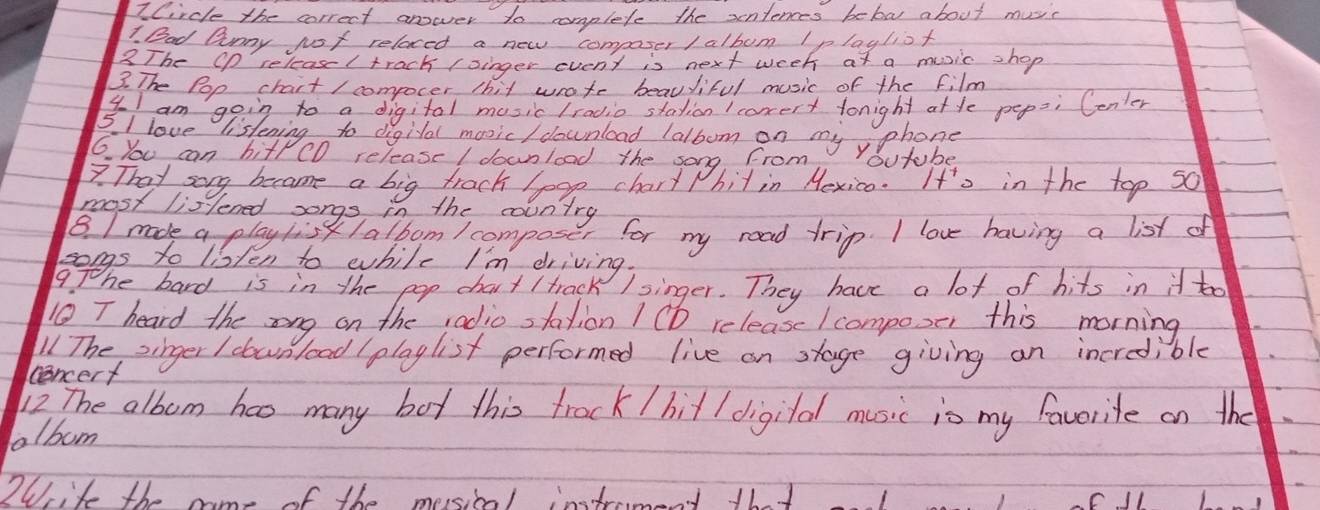 1. Circle the correct answer to complete the sentences below about music
1. Bad Bunny just relaced a new composer / album / playlist
2 The CD release / track / singer event is next week at a music shop
3. The Pop chart / compocer / hit wrote beautiful music of the film
4. I am goin to a digital music / radio station / concert tonight at te pepsi Center
5. I love listening to digital music / download / album on my phone
6. You can hit / CD release / download the song from Youtube
7. That song became a big track / pop chart / hit in Mexico. It's in the top 50
most listened songs in the country
8. I made a playlist / album / composer for my road trip. I love having a list of
songs to listen to while I'm driving.
9. The band is in the pop chart / track / singer. They have a lot of hits in it too
10 I heard the song on the radio station / CD release / composer this morning
11 The singer / download / playlist performed live on stage giving an incredible
concert
12 The album has many but this track / hit / digital music is my favorite on the
album
2 Write the name of the musical instrument that